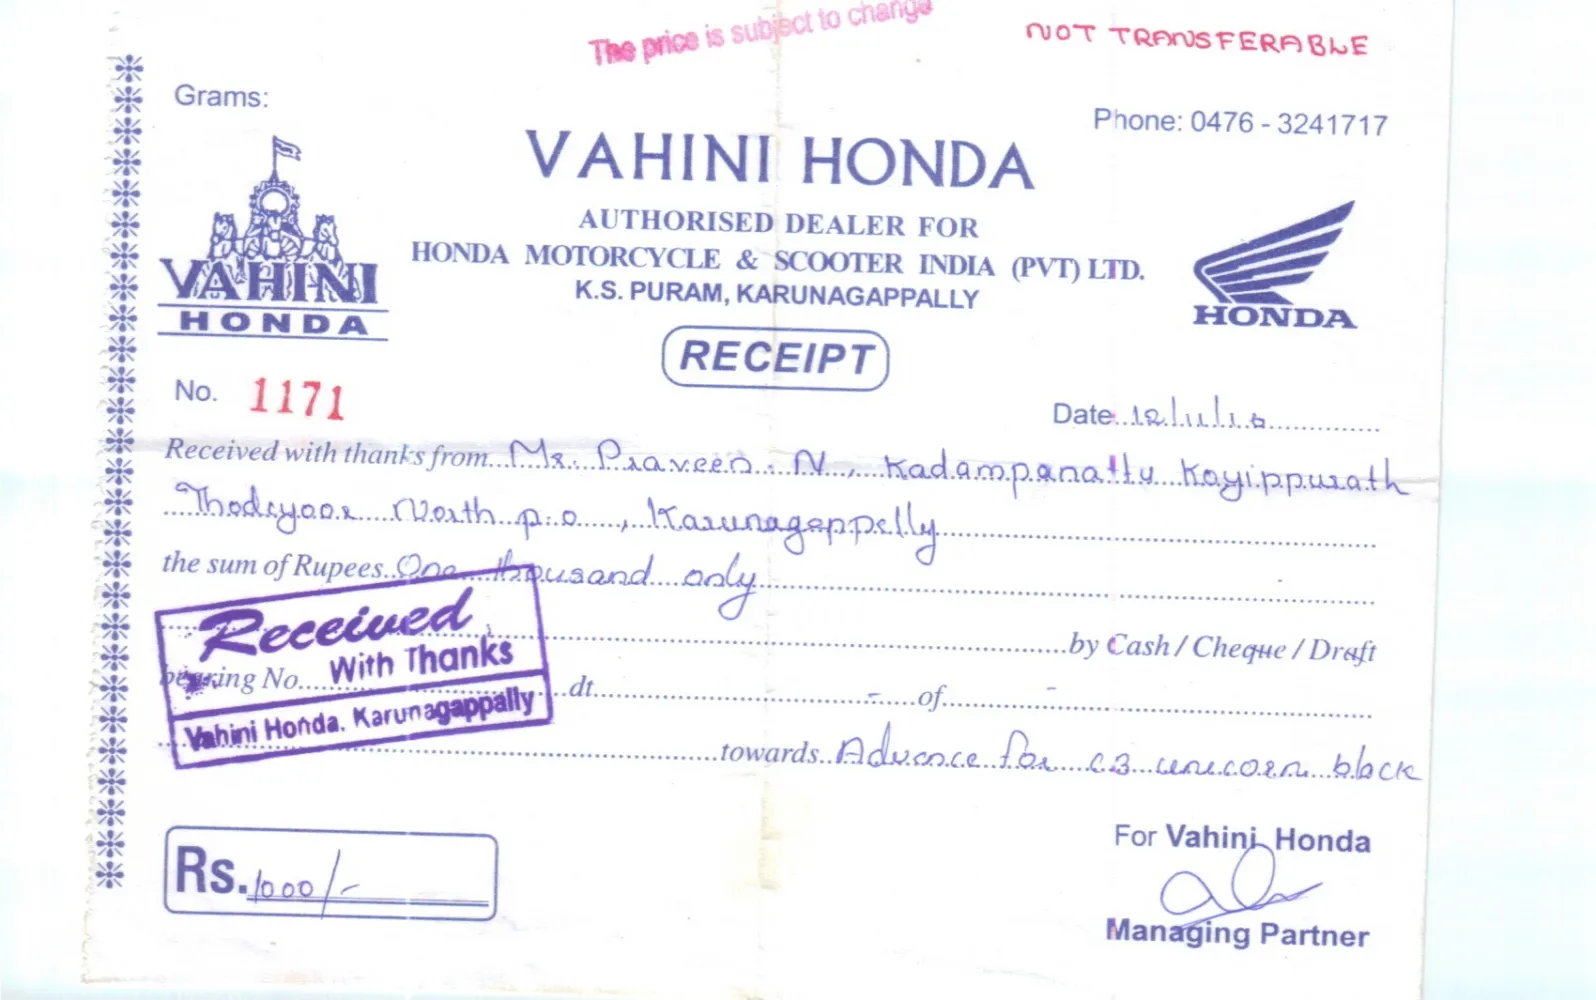 The price is subject to change
NOT TRANSFERABLE
Grams:
Phone: 0476 - 3241717
VAHINI HONDA
AUTHORISED DEALER FOR
HONDA MOTORCYCLE & SCOOTER INDIA (PVT) LTD.
K.S. PURAM, KARUNAGAPPALLY
VAHINI
HONDA
HONDA
RECEIPT
No. 1171
Date 12/11/10
Received with thanks from Mr. Praveen. N, Kadampanattu Kayippurath
Thodiyoor North p.o, Karunagappally
the sum of Rupees One thousand only
by Cash / Cheque / Draft
bearing No. dt - of -
Received
With Thanks
Vahini Honda. Karunagappally
towards Advance for CB unicorn black
Rs. 1000/-
For Vahini Honda
Managing Partner